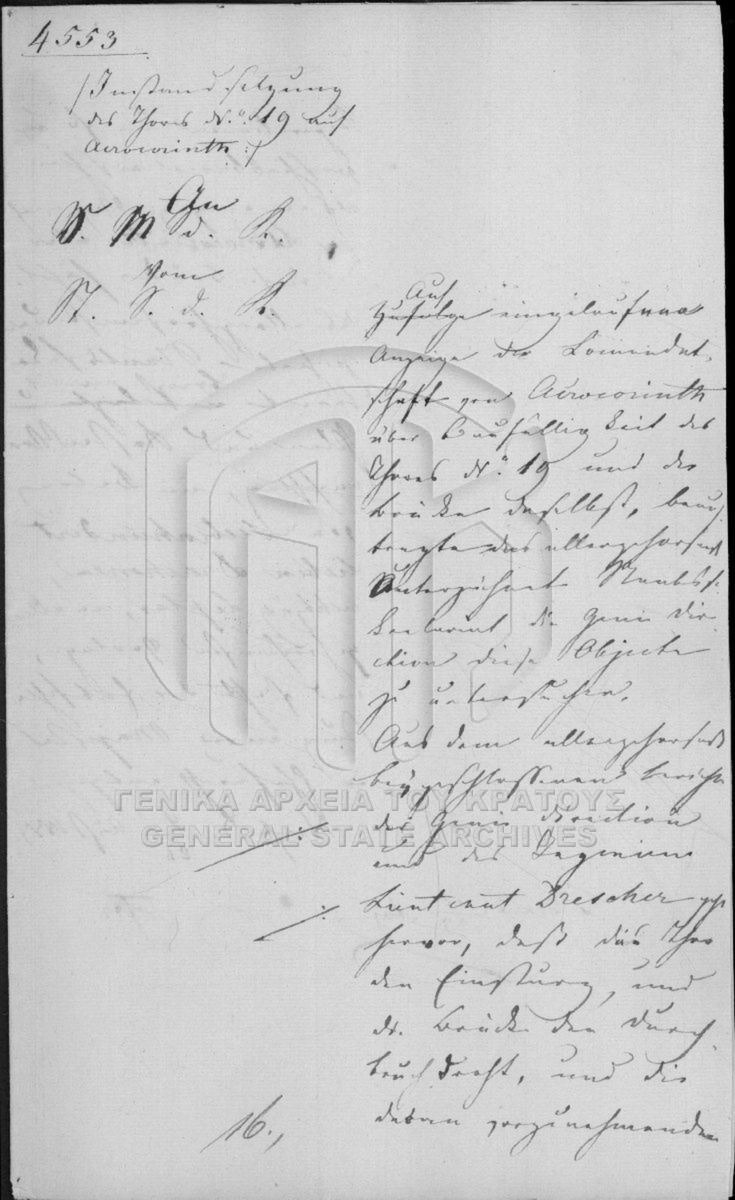 4553
/:Instandsetzung
des Thores N.º 19 auf
Acrocorinth:/
An
S. M. d. K.
Vom
St. S. d. K.
Auf
Zufolge eingelaufene
Anzeige der Comandant-
schaft von Acrocorinth
über Baufälligkeit des
Thores N.º 19 und der
Brücke daselbst, beauf-
tragte das allergehorsamst
Unterzeichnete Staatsse-
kretariat die Genie Dire-
ction diese Objecte
zu untersuchen.
Aus dem allergehorsamst
beygeschlossenen Berichte
der Genie Direction
und des Ingenieur
Lieutenant Drescher geht
hervor, daß das Thor
den Einsturz, und
die Brücke den Durch-
bruch droht, und die
daran vorzunehmenden
16.,
ΓΕΝΙΚΑ ΑΡΧΕΙΑ ΤΟΥ ΚΡΑΤΟΥΣ
GENERAL STATE ARCHIVES